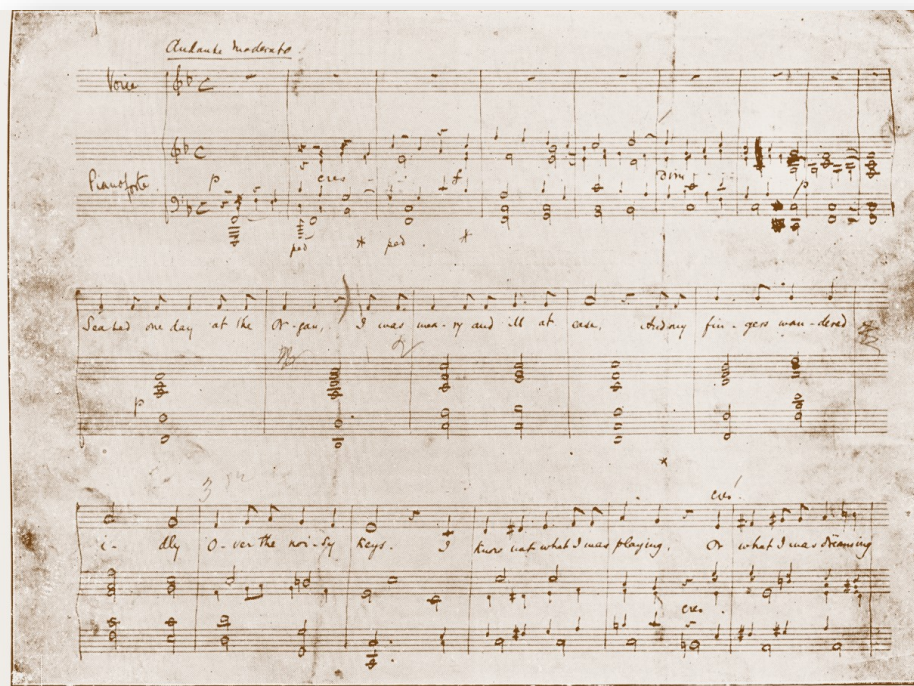 Andante moderato
Voice
Pianoforte
p cres f Dim p
ped * ped. *
Seated one day at the Or-gan, I was wea-ry and ill at ease, And my fin-gers wan-dered
p
*
3
cres.
i-dly O-ver the noi-sy keys. I know not what I was playing, Or what I was dreaming
cres.